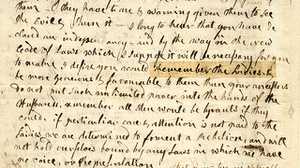 if they have time & warning given them to see
the Evil & shun it — I long to hear that you have de
clared an independancy — and by the way in the new
Code of Laws which I suppose it will be necessary for you
to make I desire you would Remember the Ladies, &
be more generous & favourable to them than your ancestors
do not put such unlimited power into the hands of the
Husbands, remember all Men would be tyrants if they
could, if perticuliar care & attention is not paid to the
Laidies we are determined to foment a Rebelion, and will
not hold ourselves bound by any Laws in which we have
no voice, or Representation